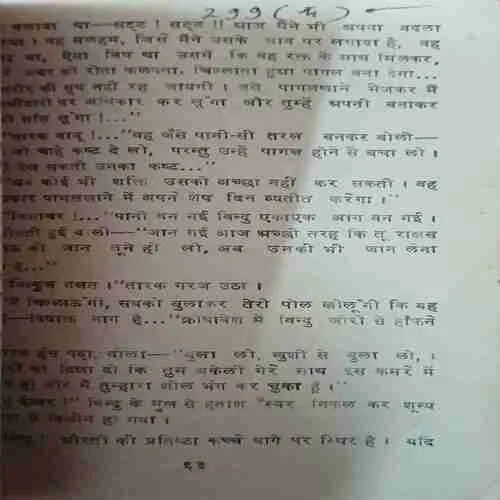 299 (फ)
बताया था—सट्ट ! सट्ट !! आज मैंने भी अपना बदला
यह मलहम, जिसे मैंने उसके घाव पर लगाया है, वह
था, ऐसा विष था उसमें कि वह रक्त के साथ मिलकर,
को रोता कलपता, चिल्लाता हुआ पागल बना देगा...
की सुध नहीं रह जायगी । उसे पागलखाने भेजकर मैं
पर अधिकार कर लूँगा और तुम्हें अपनी बनाकर
लूंगा !..."
बाबू !..."वह जैसे पानी-सी तरल बनकर बोली—
जो चाहे कष्ट दे लो, परन्तु उन्हें पागल होने से बचा लो ।
सकती उनका कष्ट..."
कोई भी शक्ति उसको अच्छा नहीं कर सकती । वह
पागलखाने में अपने शेष दिन व्यतीत करेगा ।"
!..."पानी बन गई बिन्दु एकाएक आग बन गई ।
हुई बोली—"जान गई आज अच्छी तरह कि तू राक्षस
की जान तूने ही ली, अब उनकी भी जान लेना
है..."
गलत ।"तारक गरज उठा ।
चिल्लाऊँगी, सबको बुलाकर तेरी पोल खोलूँगी कि वह
—विषाक्त नाग है..."क्रोधावेश में बिन्दु जोरों से हाँफने
हँस पड़ा, बोला—"बुला लो, खुशी से बुला लो, ।
दिखा दो कि तुम अकेली मेरे साथ इस कमरे में
हो और मैं तुम्हारा शील भंग कर चुका हूँ ।"
ईश्वर !" बिन्दु के मुख से हताश स्वर निकल कर शून्य
में विलीन हो गया ।
औरतों की प्रतिष्ठा कच्चे धागे पर स्थिर है । यदि
६३